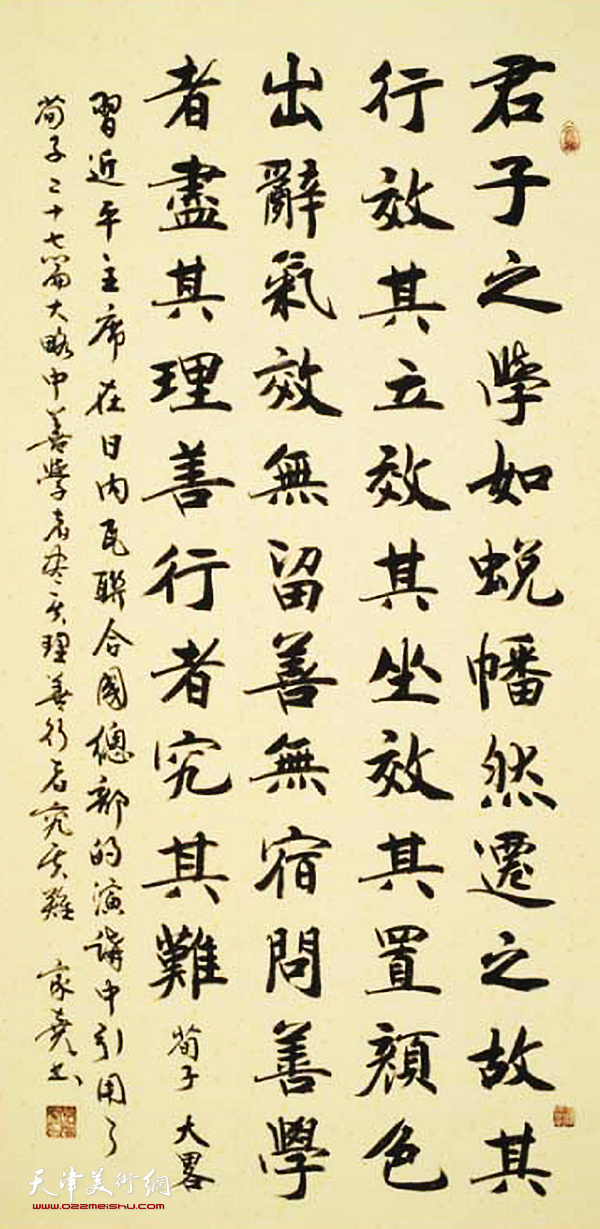 君子之學如蛻幡然遷之故其
行效其立效其坐效其置顔色
出辭氣效無留善無宿問善學
者盡其理善行者究其難 荀子 大畧
習近平主席在日内瓦聯合國總部的演講中引用了
荀子二十七篇大略中善學者盡其理善行者究其難 家堯書
天津美術網
www.022meishu.com